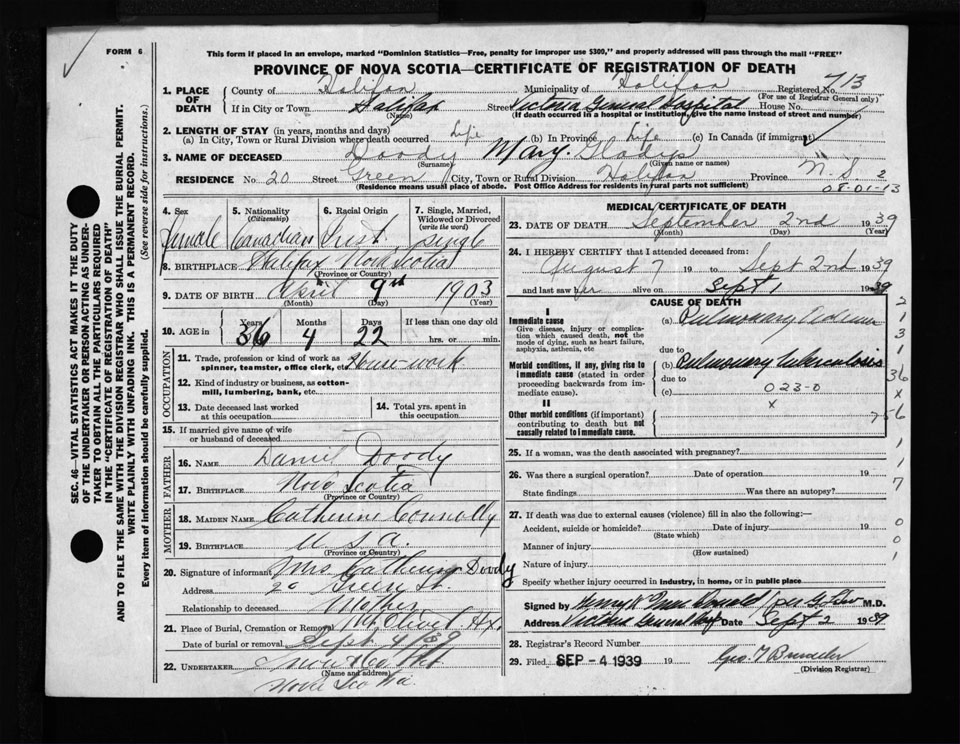 FORM 6
This form if placed in an envelope, marked "Dominion Statistics—Free, penalty for improper use $300," and properly addressed will pass through the mail "FREE"
PROVINCE OF NOVA SCOTIA—CERTIFICATE OF REGISTRATION OF DEATH
SEC. 46—VITAL STATISTICS ACT MAKES IT THE DUTY
OF THE UNDERTAKER OR PERSON ACTING AS UNDER-
TAKER TO OBTAIN ALL THE PARTICULARS REQUIRED
IN THE "CERTIFICATE OF REGISTRATION OF DEATH"
AND TO FILE THE SAME WITH THE DIVISION REGISTRAR WHO SHALL ISSUE THE BURIAL PERMIT.
WRITE PLAINLY WITH UNFADING INK. THIS IS A PERMANENT RECORD.
Every item of information should be carefully supplied. (See reverse side for instructions.)
1. PLACE OF DEATH
County of Halifax Municipality of Halifax Registered No. 713
(For use of Registrar General only)
If in City or Town Halifax Street Victoria General Hospital House No.
(Name) (If death occurred in a hospital or institution, give the name instead of street and number)
2. LENGTH OF STAY (in years, months and days)
(a) In City, Town or Rural Division where death occurred Life (b) In Province Life (c) In Canada (if immigrant)
3. NAME OF DECEASED Doody Mary Gladys
(Surname) (Given name or names)
RESIDENCE No 20 Street Green City, Town or Rural Division Halifax Province N.S. 2
(Residence means usual place of abode. Post Office Address for residents in rural parts not sufficient)
08-01-13
4. Sex female
5. Nationality (Citizenship) Canadian
6. Racial Origin Irish
7. Single, Married, Widowed or Divorced (write the word) single
8. BIRTHPLACE Halifax Nova Scotia
(Province or Country)
9. DATE OF BIRTH April 9th 1903
(Month) (Day) (Year)
10. AGE in Years Months Days If less than one day old
36 4 22 hrs. or min.
OCCUPATION
11. Trade, profession or kind of work as spinner, teamster, office clerk, etc. House-work
12. Kind of industry or business, as cotton-mill, lumbering, bank, etc.
13. Date deceased last worked at this occupation
14. Total yrs. spent in this occupation
15. If married give name of wife or husband of deceased
FATHER
16. NAME Daniel Doody
17. BIRTHPLACE Nova Scotia
(Province or Country)
MOTHER
18. MAIDEN NAME Catherine Connolly
19. BIRTHPLACE U.S.A.
(Province or Country)
20. Signature of informant Mrs Catherine Doody
Address 20 Green St.
Relationship to deceased Mother
21. Place of Burial, Cremation or Removal Mt Olivet Hx.
Date of burial or removal Sept 4/39
22. UNDERTAKER Snow
(Name and address)
Nova Scotia.
MEDICAL CERTIFICATE OF DEATH
23. DATE OF DEATH September 2nd 1939
(Month) (Day) (Year)
24. I HEREBY CERTIFY that I attended deceased from:
August 7 19 to Sept 2nd 1939
and last saw her alive on Sept 1 1939
CAUSE OF DEATH
I
Immediate cause
Give disease, injury or complication which caused death, not the mode of dying, such as heart failure, asphyxia, asthenia, etc
(a) Pulmonary
due to
Morbid conditions, if any, giving rise to immediate cause (stated in order proceeding backwards from immediate cause).
(b) Pulmonary tuberculosis
due to
(c) 023-0
x
II
Other morbid conditions (if important) contributing to death but not causally related to Immediate cause.
25. If a woman, was the death associated with pregnancy?
26. Was there a surgical operation? Date of operation 19
State findings Was there an autopsy?
27. If death was due to external causes (violence) fill in also the following:—
Accident, suicide or homicide? Date of injury 19
(State which)
Manner of injury
(How sustained)
Nature of injury
Specify whether injury occurred in industry, in home, or in public place
Signed by M.D.
Address Victoria General Hosp Date Sept 2 1939
28. Registrar's Record Number
29. Filed SEP - 4 1939 19
(Division Registrar)